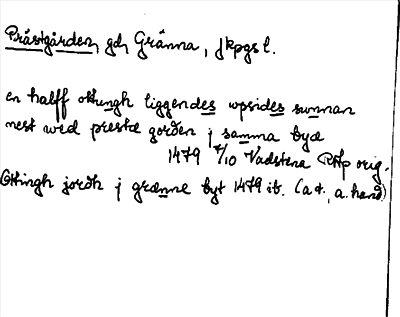 Prästgården, gd, Gränna, Jkpgs l.
en halff ottungh liggendes wpsides sunnan
nest wed preste gorden j samma byæ
1479 4/10 Vadstena RAp orig.
Ottingh jordh j grænne byt 1479 ib. (a t., a. hand)